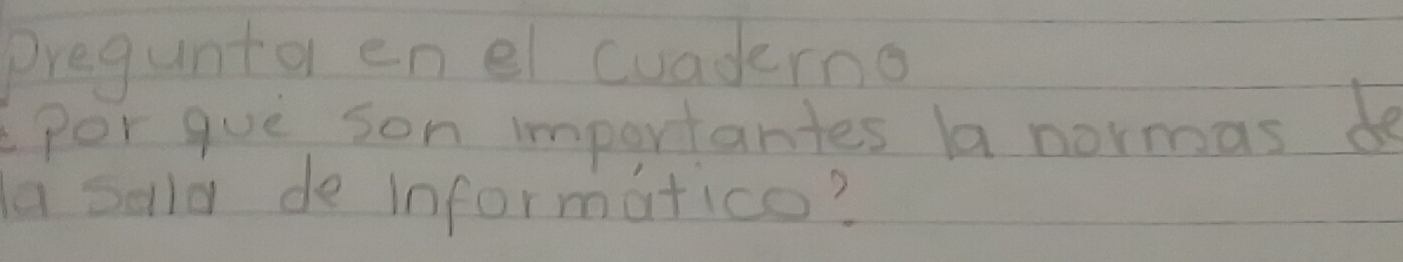 Pregunta en el cuaderno
¿Por qué son importantes la normas de
la sala de informático?